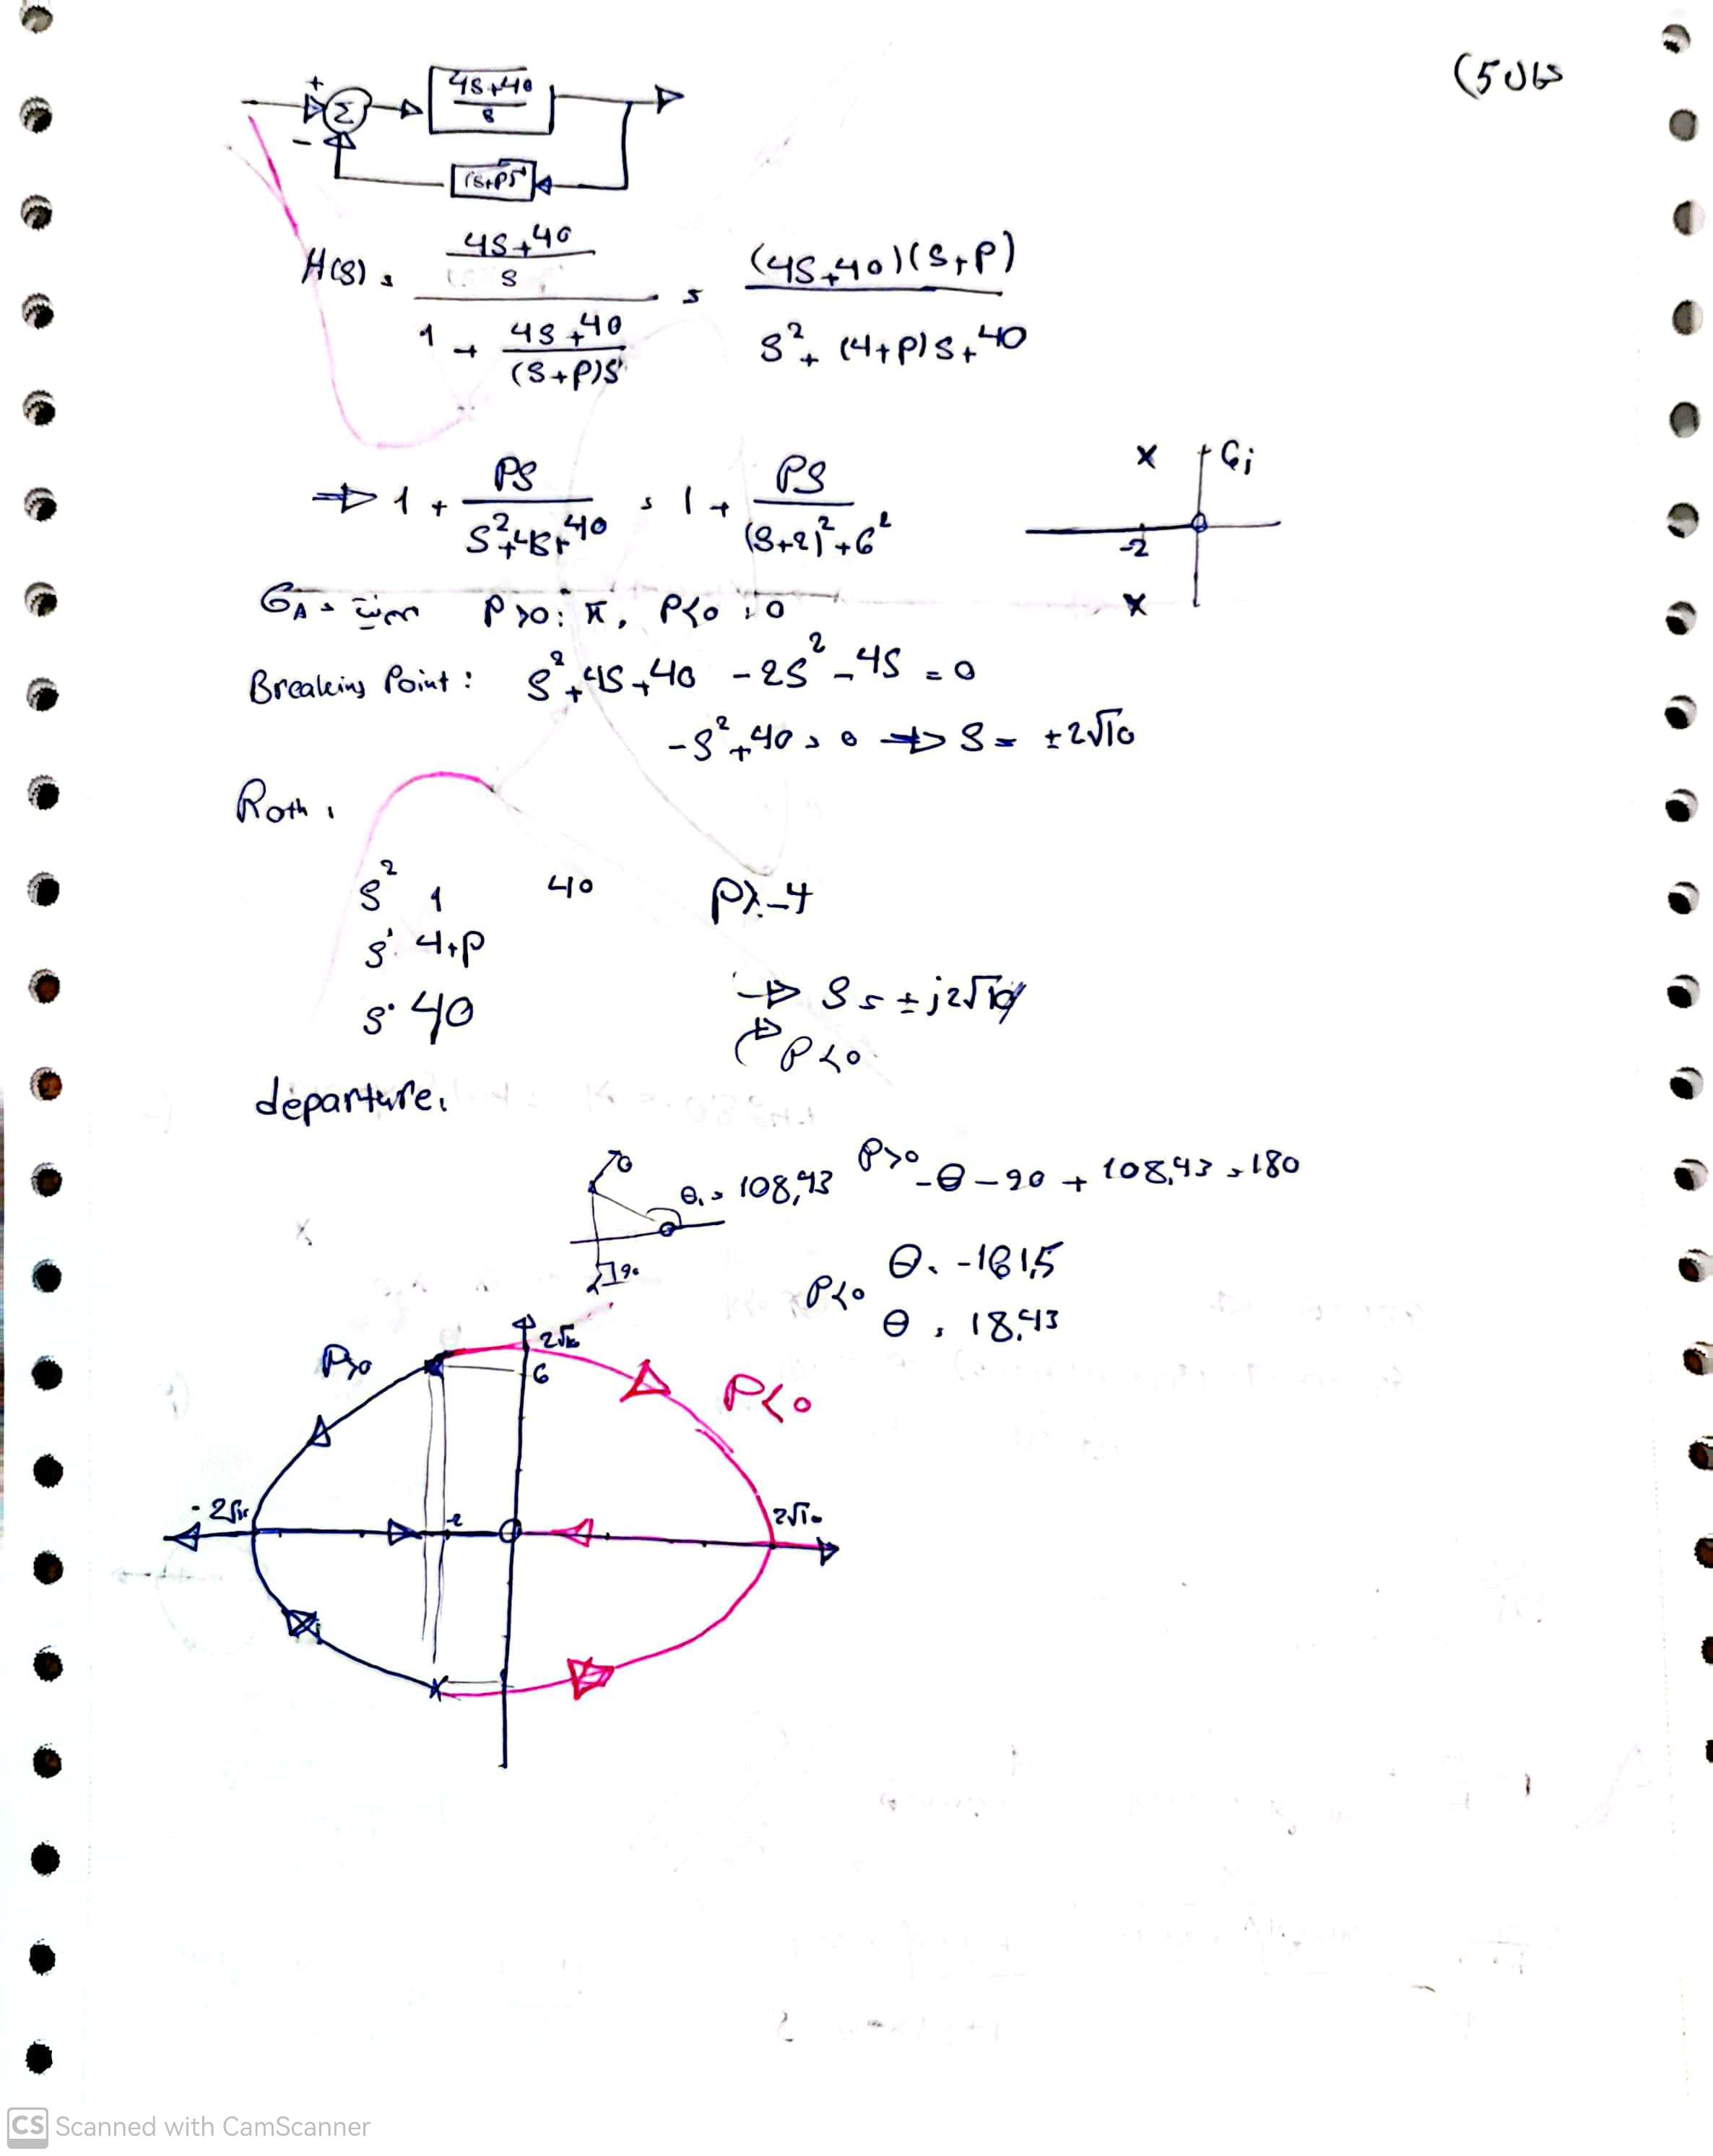 (5 سوال
+
Σ
-
4s+40
s
(s+p)⁻¹
H(s) = (4s+40)/s / (1 + (4s+40)/((s+p)s)) = (4s+40)(s+p) / (s²+(4+p)s+40)
⇒ 1 + ps/(s²+4s+40) = 1 + ps/((s+2)²+6²)
6j
-2
P>0: π, P<0: 0
Breaking Point: s²+4s+40 -2s²-4s = 0
-s²+40 = 0 ⇒ s = ±2√10
Roth:
s² 1 40
s¹ 4+p
s⁰ 40
P>-4
⇒ s = ±j2√10
P<0
departure:
θ
θ₁ = 108,43
90
P>0 -θ-90+108,43 = 180
θ = -161,5
P<0
θ = 18,43
P>0
2√10
6
P<0
-2√10
-2
2√10
CS Scanned with CamScanner